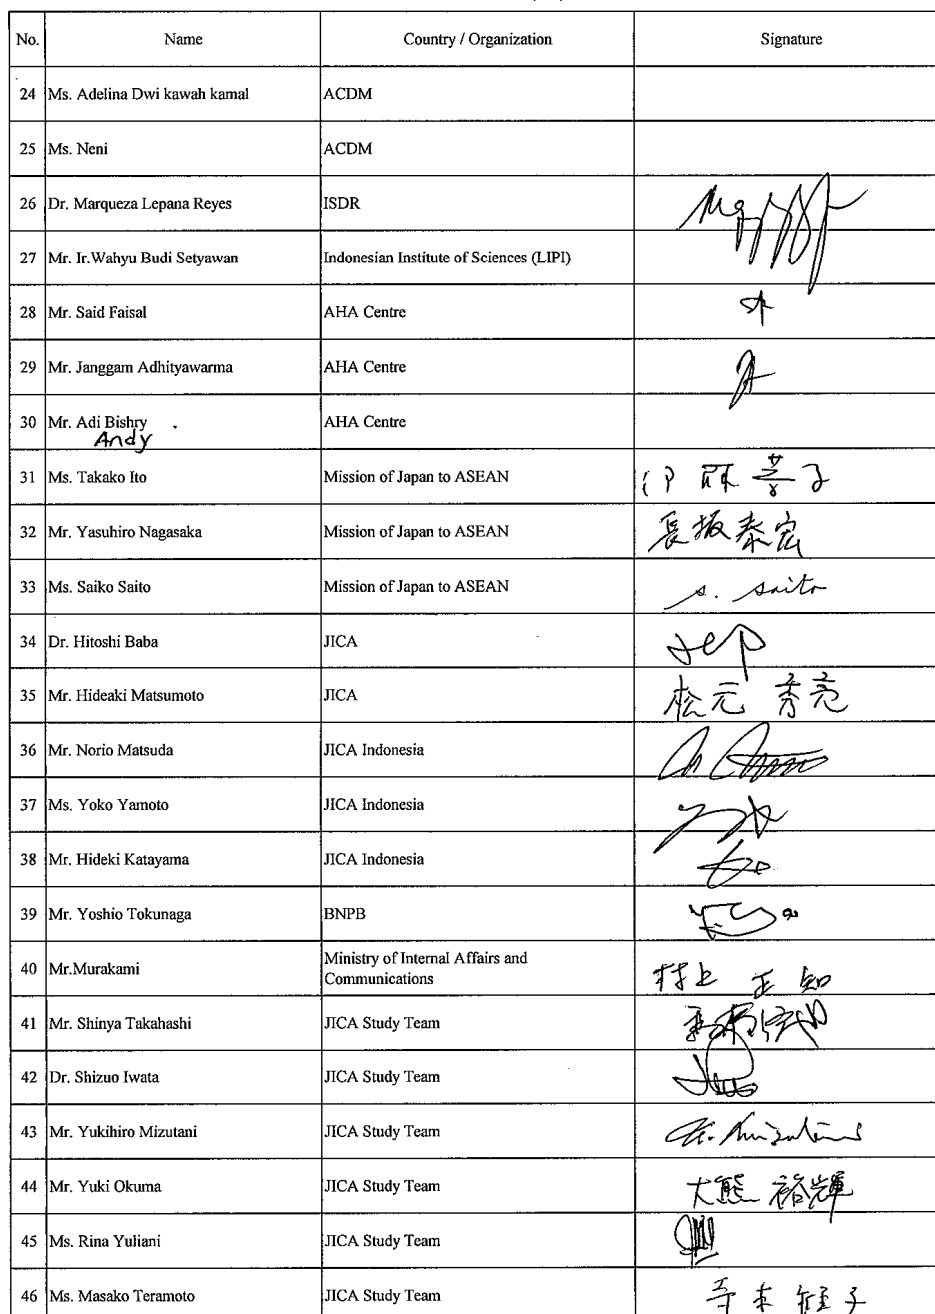 No. Name Country / Organization Signature
24 Ms. Adelina Dwi kawah kamal ACDM
25 Ms. Neni ACDM
26 Dr. Marqueza Lepana Reyes ISDR
27 Mr. Ir.Wahyu Budi Setyawan Indonesian Institute of Sciences (LIPI)
28 Mr. Said Faisal AHA Centre
29 Mr. Janggam Adhityawarma AHA Centre
30 Mr. Adi Bishry AHA Centre
Andy
31 Ms. Takako Ito Mission of Japan to ASEAN 伊藤 子
32 Mr. Yasuhiro Nagasaka Mission of Japan to ASEAN 長坂泰宏
33 Ms. Saiko Saito Mission of Japan to ASEAN s. saito
34 Dr. Hitoshi Baba JICA
35 Mr. Hideaki Matsumoto JICA 松元 秀亮
36 Mr. Norio Matsuda JICA Indonesia
37 Ms. Yoko Yamoto JICA Indonesia
38 Mr. Hideki Katayama JICA Indonesia
39 Mr. Yoshio Tokunaga BNPB
40 Mr.Murakami Ministry of Internal Affairs and
Communications 村上 正知
41 Mr. Shinya Takahashi JICA Study Team
42 Dr. Shizuo Iwata JICA Study Team
43 Mr. Yukihiro Mizutani JICA Study Team
44 Mr. Yuki Okuma JICA Study Team 大熊 裕輝
45 Ms. Rina Yuliani JICA Study Team
46 Ms. Masako Teramoto JICA Study Team 寺本 雅子